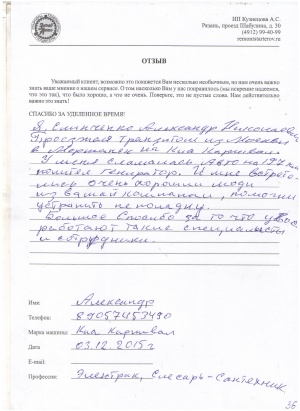 ИП Кузнецова А.С.
Рязань, проезд Шабулина, д. 30
(4912) 99-40-99
remontstarterov.ru
ОТЗЫВ
Уважаемый клиент, возможно это покажется Вам несколько необычным, но нам очень важно
знать ваше мнение о нашем сервисе. О том насколько Вам у нас понравилось (мы искренне надеемся,
что это так), что было хорошо, а что не очень. Поверьте, это не пустые слова. Нам действительно
важно это знать!
СПАСИБО ЗА УДЕЛЕННОЕ ВРЕМЯ!
Я, Александр Николаевич
Проезжал транзитом из Москвы
в на Киа Карнивал
У меня сломалась Авто на
генератор. И мне встрети-
лись очень хорошие люди
из вашей компании, помогли
устранить неполадку.
Большое Спасибо за то что у вас
работают такие специалисты
и сотрудники.
Имя: Александр
Телефон: 89057453490
Марка машины: Киа Карнивал
Дата 03.12.2015г
E-mail:
Профессия: Электрик, Слесарь-Сантехник